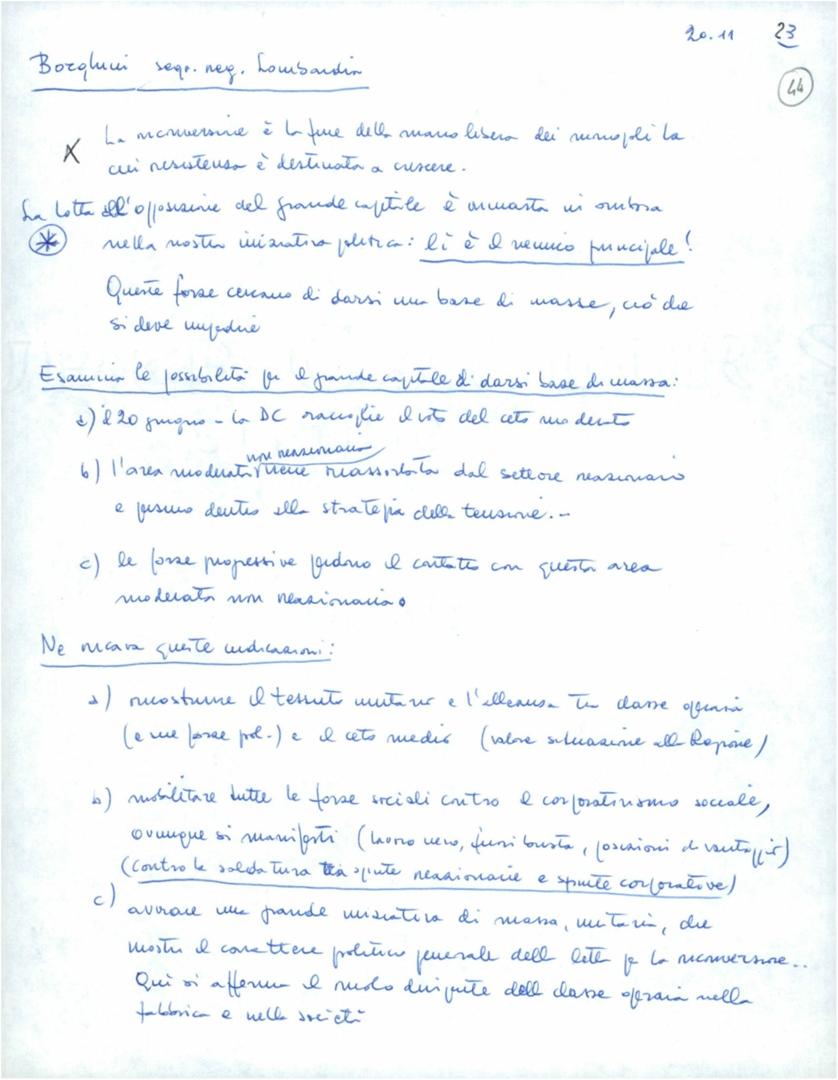 20.11 23
44
Borghini segr. reg. Lombardia
X La riconversione è la fine della mano libera dei monopoli la
cui resistenza è destinata a crescere.
La lotta all'opposizione del grande capitale è rimasta in ombra
nella nostra iniziativa politica: lì è il nemico principale!
Queste forze cercano di darsi una base di masse, ciò che
si deve impedire
Esamina le possibilità per il grande capitale di darsi base di massa:
a) il 20 giugno - la DC raccoglie il voto del ceto moderato
non reazionaria
b) l'area moderata viene riassorbita dal settore reazionario
e persino dentro alla strategia della tensione.-
c) le forze progressive perdono il contatto con questa area
moderata non reazionaria.
Ne ricava queste indicazioni:
a) ricostruire il tessuto unitario e l'alleanza tra classe operaia
(e sue forze pol.) e il ceto medio (valore situazione alla Regione)
b) mobilitare tutte le forze sociali contro il corporativismo sociale,
ovunque si manifesti (lavoro nero, fuori busta, posizioni di vantaggio)
(contro la saldatura tra spinte reazionarie e spinte corporative)
c) avviare una grande iniziativa di massa, unitaria, che
mostri il carattere politico generale della lotta per la riconversione..
Qui si afferma il ruolo dirigente della classe operaia nella
fabbrica e nella società